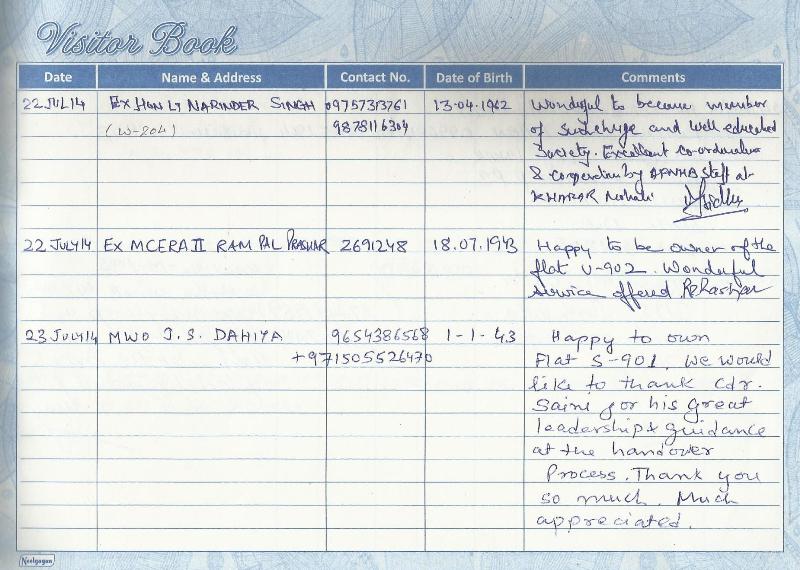 Visitor Book
Date Name & Address Contact No. Date of Birth Comments
22 JUL 14 EX HON LT NARINDER SINGH 09757313761 13-04-1962 Wonderful to become member
(W-204) 9878116304 of such huge and well educated
Society. Excellent co-ordination
& cooperation by AFNHB Staff at
KHARAR Mohali
22 JULY 14 EX MCERA II RAM PAL PRASHAR 2691248 18.07.1943 Happy to be owner of the
flat U-902. Wonderful
service offered
23 July 14 MWO J.S. DAHIYA 9654386568 1-1-43 Happy to own
+971505526470 Flat S-901. We would
like to thank Cdr.
Saini for his great
leadership & guidance
at the handover
Process. Thank you
so much. Much
appreciated.
Neelgagan